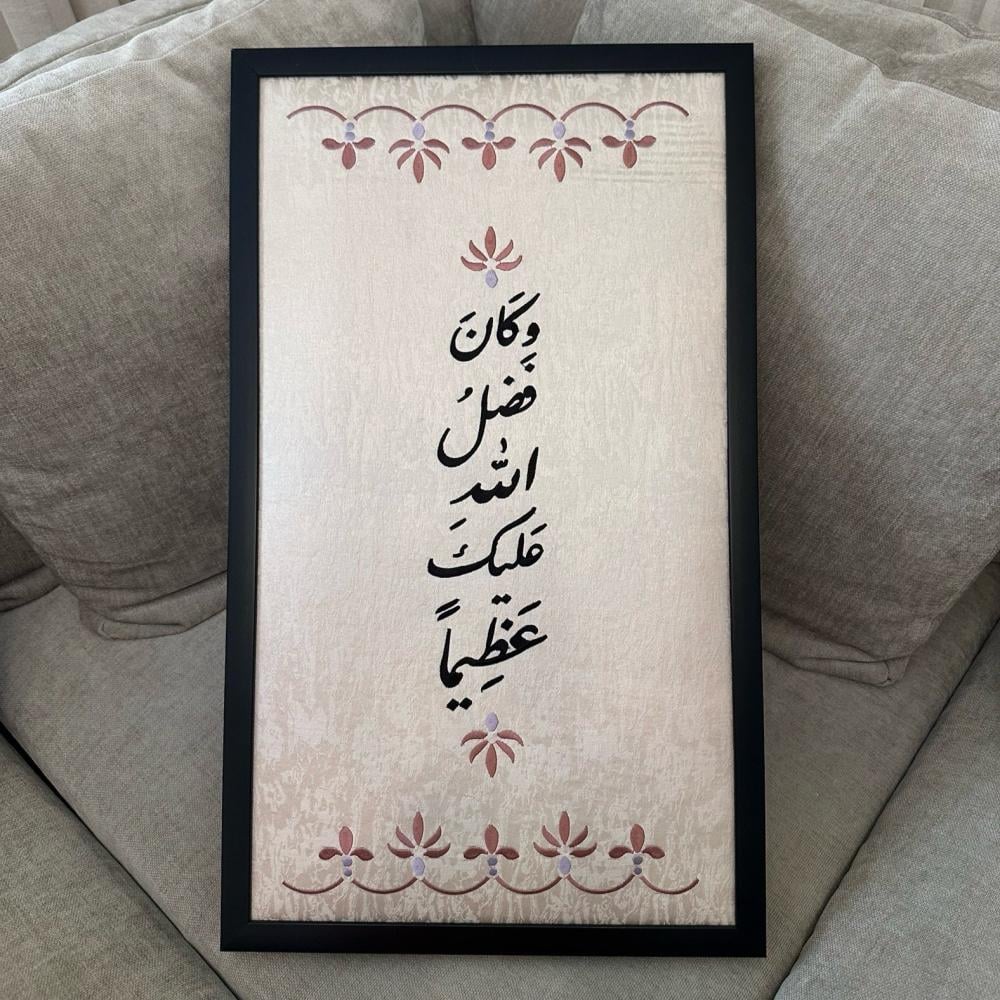 وَكَانَ
فَضلُ
الله
عَليكَ
عَظِيماً